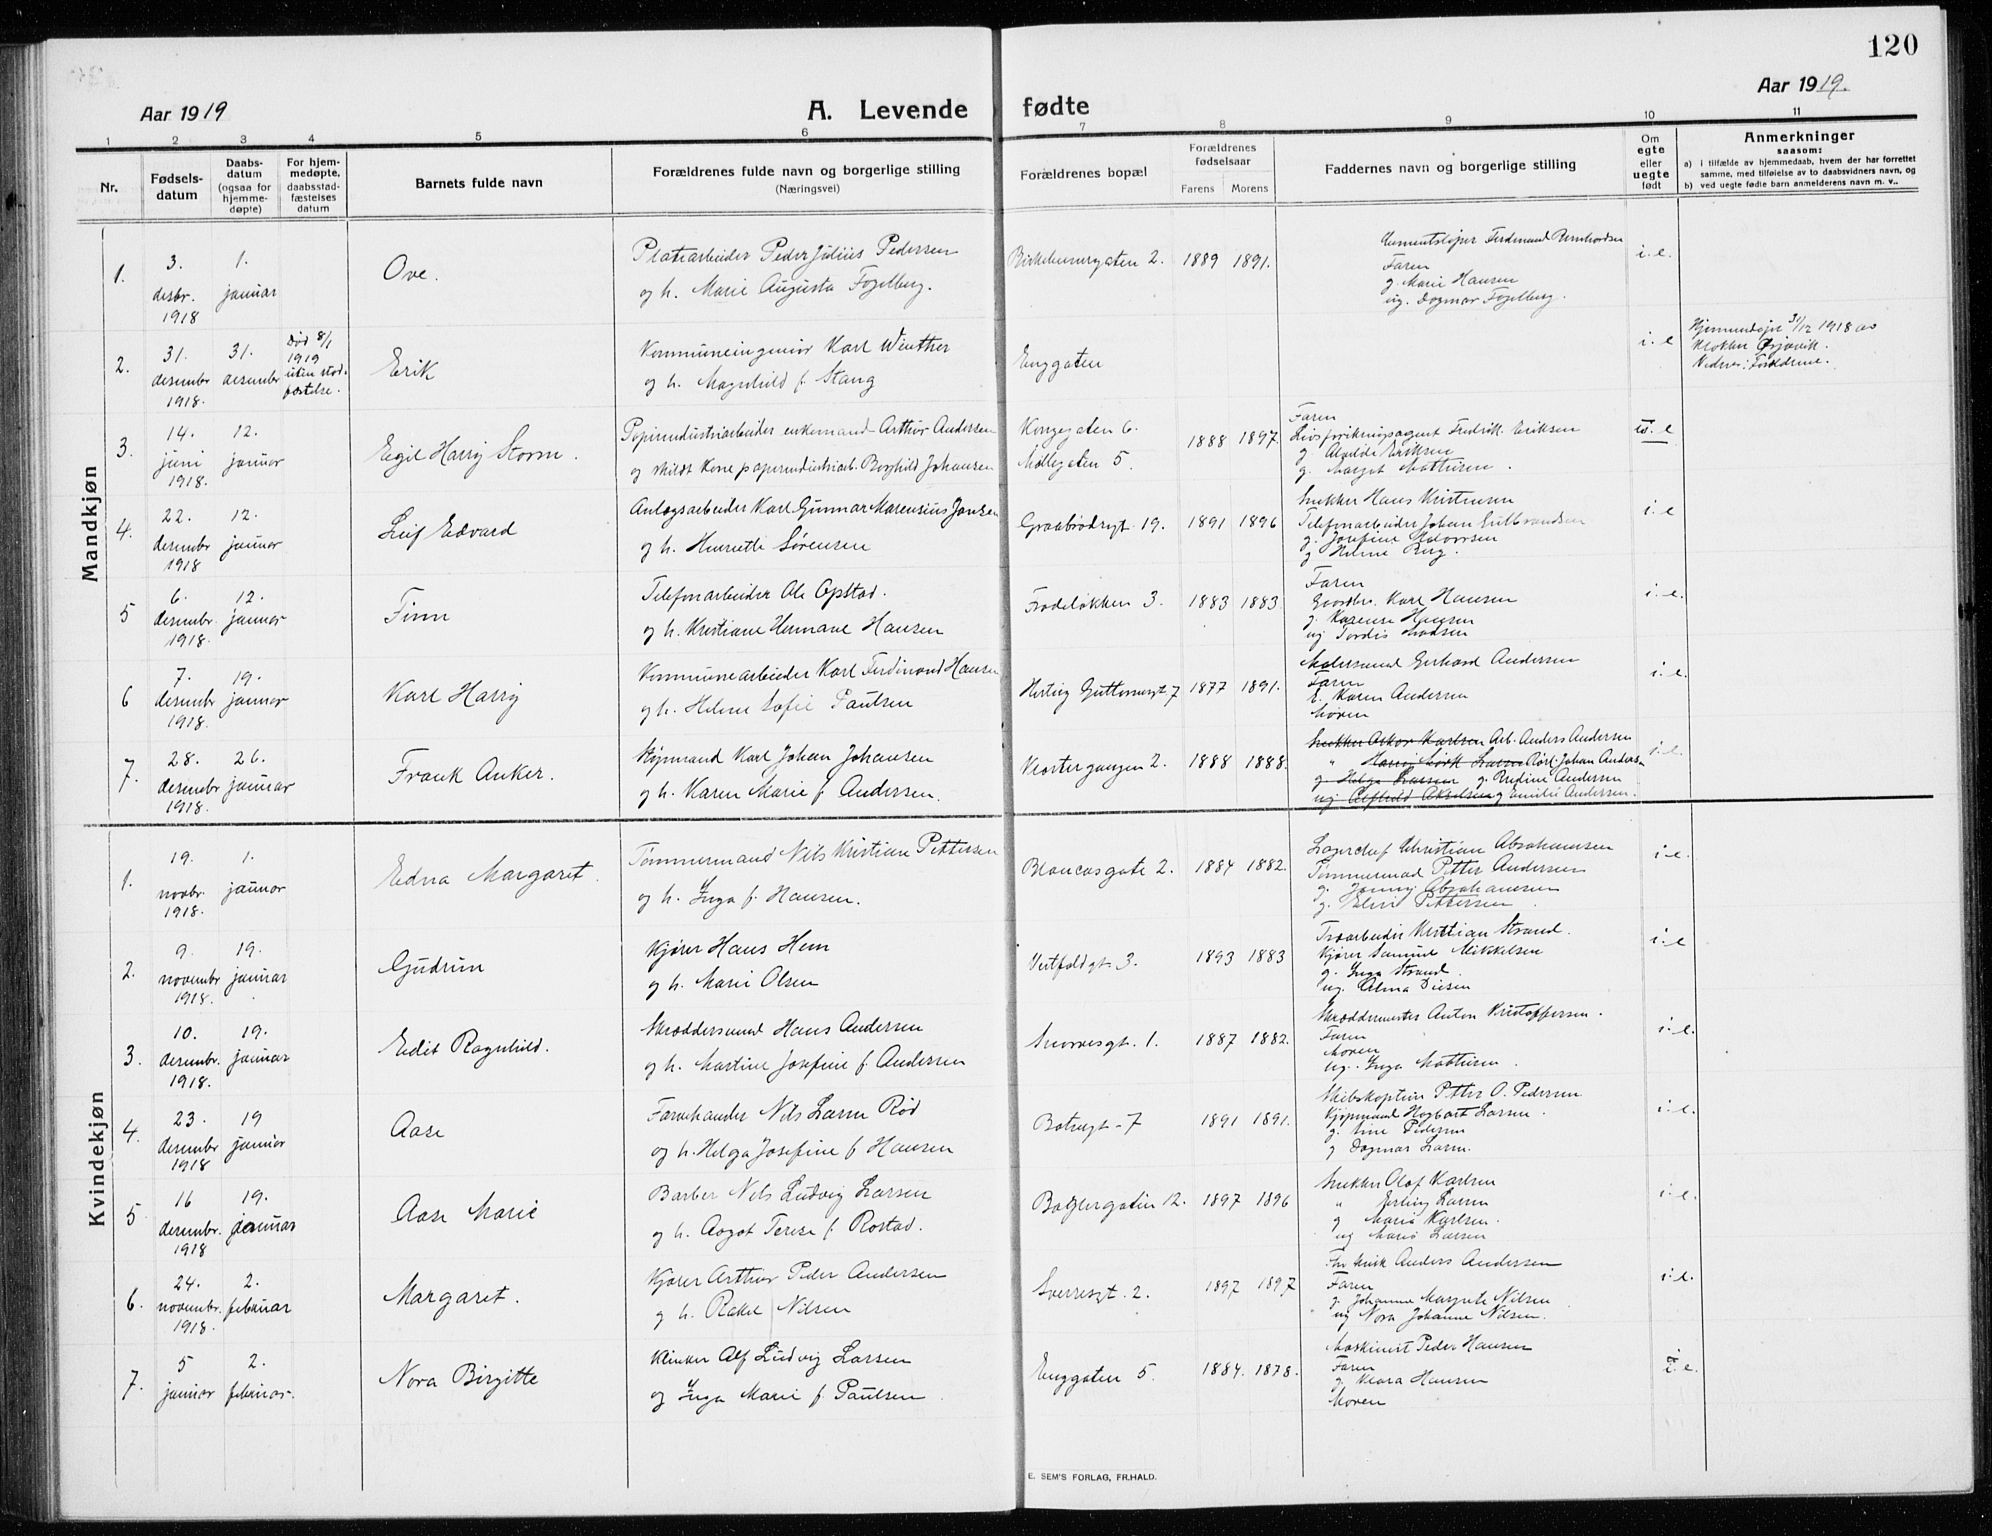 120
Aar 1919
A. Levende fødte
Aar 1919.
1 2 3 4 5 6 7 8 9 10 11
Nr.
Fødsels-
datum
Daabs-
datum
(ogsaa for
hjemme-
døpte)
For hjem-
medøpte,
daabsstad-
fæstelses
datum
Barnets fulde navn
Forældrenes fulde navn og borgerlige stilling
(Næringsvei)
Forældrenes bopæl
Forældrenes
fødselsaar
Farens Morens
Faddernes navn og borgerlige stilling
Om
egte
eller
uegte
født
Anmerkninger
saasom:
a) i tilfælde av hjemmedaab, hvem der har forrettet
samme, med tilføielse av to daabsvidners navn, og
b) ved uegte fødte barn anmelderens navn m. v..
Mandkjøn
1.
3.
desbr.
1918
1.
januar
Ove.
Platearbeider Peder Julius Pedersen
og h. Marie Augusta Fogelberg.
Birkebeinergaten 2. 1889 1891.
Ferdinand Bernhardsen
Faren
g. Marie Hansen
ug. Dagmar Fogelberg.
i.e.
2.
31.
desember
1918.
31.
desember
Død 8/1
1919
uten stad-
fæstelse.
Erik
Kommuneingeniør Karl Winther
og h. Magnhild f. Stang
Enggaten
i.e
Hjemmedøpt 31/12 1918 av
klokker
Vidner: Forældrene.
3.
14.
juni
1918.
12.
januar
Egil Harry Storm.
Papirindustriarbeider enkemand Arthur Andersen
og skildt kone papirindustriarb. Borghild Johansen
Kongegaten 6.
Møllegaten 5.
1888 1897.
Faren
Livsforsikringsagent Fredrik Eriksen
g. Alvilde Eriksen
g. Margit Mathisen.
u. e
4.
22.
desember
1918
12.
januar
Leif Edvard
Anlægsarbeider Karl Gunnar Marensius Jansen
og h. Henriette Sørensen
Graabrødregt. 19. 1891 1896
Snekker Hans Kristensen
Telefonarbeider Johan Gulbrandsen
g. Josefine
g Helene Berg.
i.e
5
6.
desember.
1918.
12.
januar
Finn
Telefonarbeider Ole Opstad.
og h. Kristiane Hermane Hansen
Frodeløkken 3. 1883 1883.
Faren
Gaardbr. Karl Hansen
g. Karense Hansen
ug Tordis Madsen
i.e.
6
7.
desember
1918.
19.
januar
Karl Harry
Kommunearbeider Karl Ferdinand Hansen
og h. Helene Sofie Paulsen
Hertug Guttormsgt 7 1877 1891.
Malersvend Gerhard Andersen
Faren
E. Karen Andersen
Moren
i.e.
7.
28.
desember
1918.
26.
januar
Frank Anker.
Kjøpmand Karl Johan Johansen
og h. Karen Marie f Andersen.
Klostergangen 2. 1888 1888.
Snekker Oskar Karlsen Arb. Anders Andersen
" Larsen Johan Andersen
g Helga Larsen g. Andersen
ug Alfhild Akselsen g Emilie Andersen.
i.e.
Kvindekjøn
1.
19.
novbr.
1918.
1.
januar
Edna Margaret.
Tømmermand Nils Kristian Pettersen
og h. Inga f. Hansen.
Blancasgate 2. 1884 1882.
Lagerchef Christian Abrahamsen
Tømmermand Petter Andersen
g. Jenny Abrahamsen
g. Elvie Pettersen.
i.e.
2.
9.
novembr
1918.
19.
januar
Gudrun
Kjører Hans Hem
og h. Marie Olsen
Vestfoldgt. 3. 1893 1883
Træarbeider Kristian Strand.
Kjører Samuel Mikkelsen
g. Inga Strand.
ug. Alma
i.e
3.
10.
desembr.
1918.
19.
januar
Edit Ragnhild.
Skræddersvend Hans Andersen
og h. Martine Josefine f Andersen
Snorresgt. 1. 1887 1882.
Skræddermester Anton Kristoffersen.
Faren
Moren
ug. Inga Mathisen.
i.e.
4.
23.
desember
1918
19
januar
Aase
Farvehandler Nils Larsen Rød
og h. Helga Josefine f Hansen
7 1891 1891.
Skibskaptein Petter O. Pedersen
Kjøpmand Hagbart Larsen.
g. Sine Pedersen
g Dagmar Larsen.
i.e.
5
16
desembr.
1918
19.
januar
Aase Marie
Barber Nils Ludvig Larsen
og h. Aagot Terese f. Rostad.
Baglergaten 12. 1897 1896
Snekker Olaf Karlsen
" Erling Larsen
g Marie Karlsen.
ug Marie Larsen
i.e.
6.
24.
novembr.
1918.
2.
februar
Margaret.
Kjører Arthur Peder Andersen
og h. Rakel Nilsen
Sverresgt. 2. 1897 1897
Anders Andersen
Faren
g. Johanne Margrete Nilsen
ug Nora Johanne Nilsen.
i.e.
7.
5
januar
2.
februar.
Nora Birgitte
Klinker Alf Ludvig Larsen
og Inga Marie f. Paulsen.
Enggaten 5. 1884. 1878.
Maskinist Peder Hansen
Faren
g. Klara Hansen
Moren
i.e.
E. SEM'S FORLAG, FR.HALD.